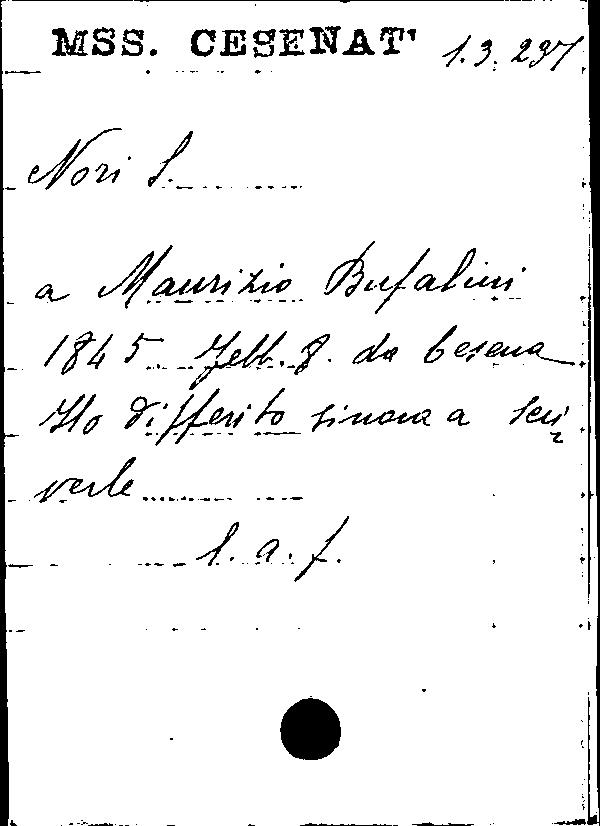 MSS. CESENAT' 1.3.237
Nori S.
a Maurizio Bufalini
1845. Febb. 8. da Cesena
Ho differito sinora a scri
verle
l. a. f.